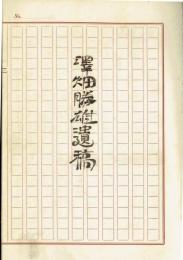 No.
澤畑勝雄遺稿